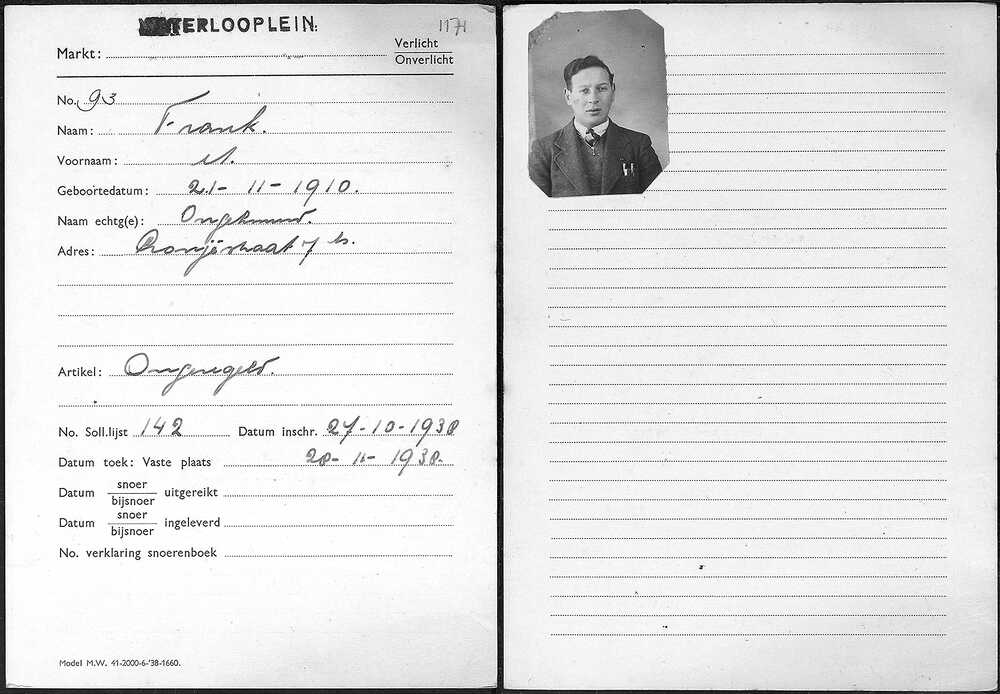 WATERLOOPLEIN.
1171
Markt:
Verlicht
Onverlicht
No. 93
Naam: Frank.
Voornaam:
Geboortedatum: 21-11-1910.
Naam echtg(e): Ongehuwd.
Adres: Cronjéstraat 7 hs.
Artikel: Ongeregeld.
No. Soll.lijst 142 Datum inschr. 27-10-1938
Datum toek: Vaste plaats 28-11-1938.
Datum snoer
bijsnoer uitgereikt
Datum snoer
bijsnoer ingeleverd
No. verklaring snoerenboek
Model M.W. 41-2000-6-'38-1660.